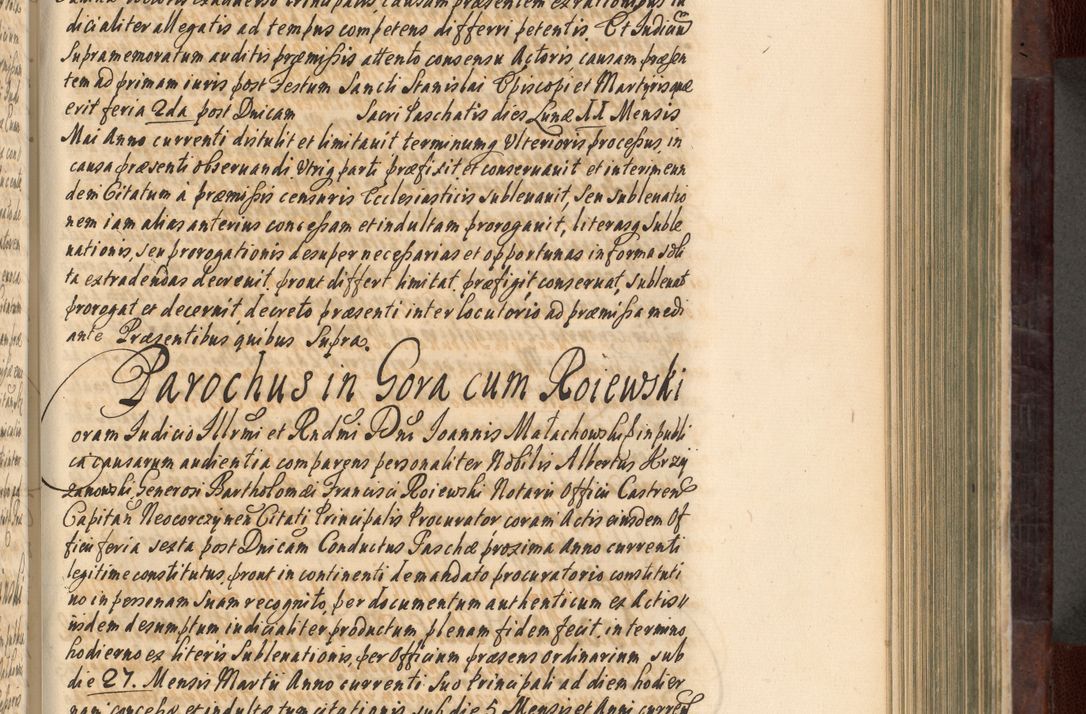 dicialiter allegatis ad tempus competens differri petentis. Et Iudicium
supramemoratum auditis præmissis attento consensu Actoris causam præsen
tem ad primam iuris post Festum Sancti Stanislai Episcopi et Martyris quæ
erit feria 2da post Dnicam Sacri Paschatis dies Lunæ 11 Mensis
Mai Anno currenti distulit et limitauit terminumq Ulterioris processus in
causa præsenti observandi Utriq parti præfixit et conservauit et interim eun
dem Citatum à præmissis censuris Ecclesiasticis subleuauit, seu subleuatio
nem iam alias anterius concessam et indultam prorogauit, literasq suble
uationis, seu prorogationis desuper necessarias et opportunas in forma soli
ta extradendas decreuit, prout differt limitat, præfigit conseruat, subleuat
prorogat et decernit, decreto præsenti interlocutorio ad præmissa medi
ante Præsentibus quibus supra.
Parochus in Gora cum Roiewski
oram Iudicio Illrmi et Rndmi Dni Ioannis Małachowski in publi
ca causarum audientia comparens personaliter Nobilis Albertus Krzy
zanowski Generosi Bartholomæi Francisci Roiewski Notarii Officii Castren
Capitan Neocorczynen Citati Principalis Procurator coram Actis eiusdem Of
ficii feria sexta post Dnicam Conductus Paschæ proxima Anno currenti
legitime constitutus, prout in continenti de mandato procuratorio constituti
uo in personam suam recognito, per documentum authenticum ex Actis
iisdem desumptum iudicialiter productum plenam fidem fecit, in termino
hodierno ex literis subleuationis, per Officium præsens ordinarium sub
die 27. Mensis Martii Anno currenti suo Principali ad diem hodier
nam concessæ et indultæ tum citationis sub die 5 Mensis et Anni curren